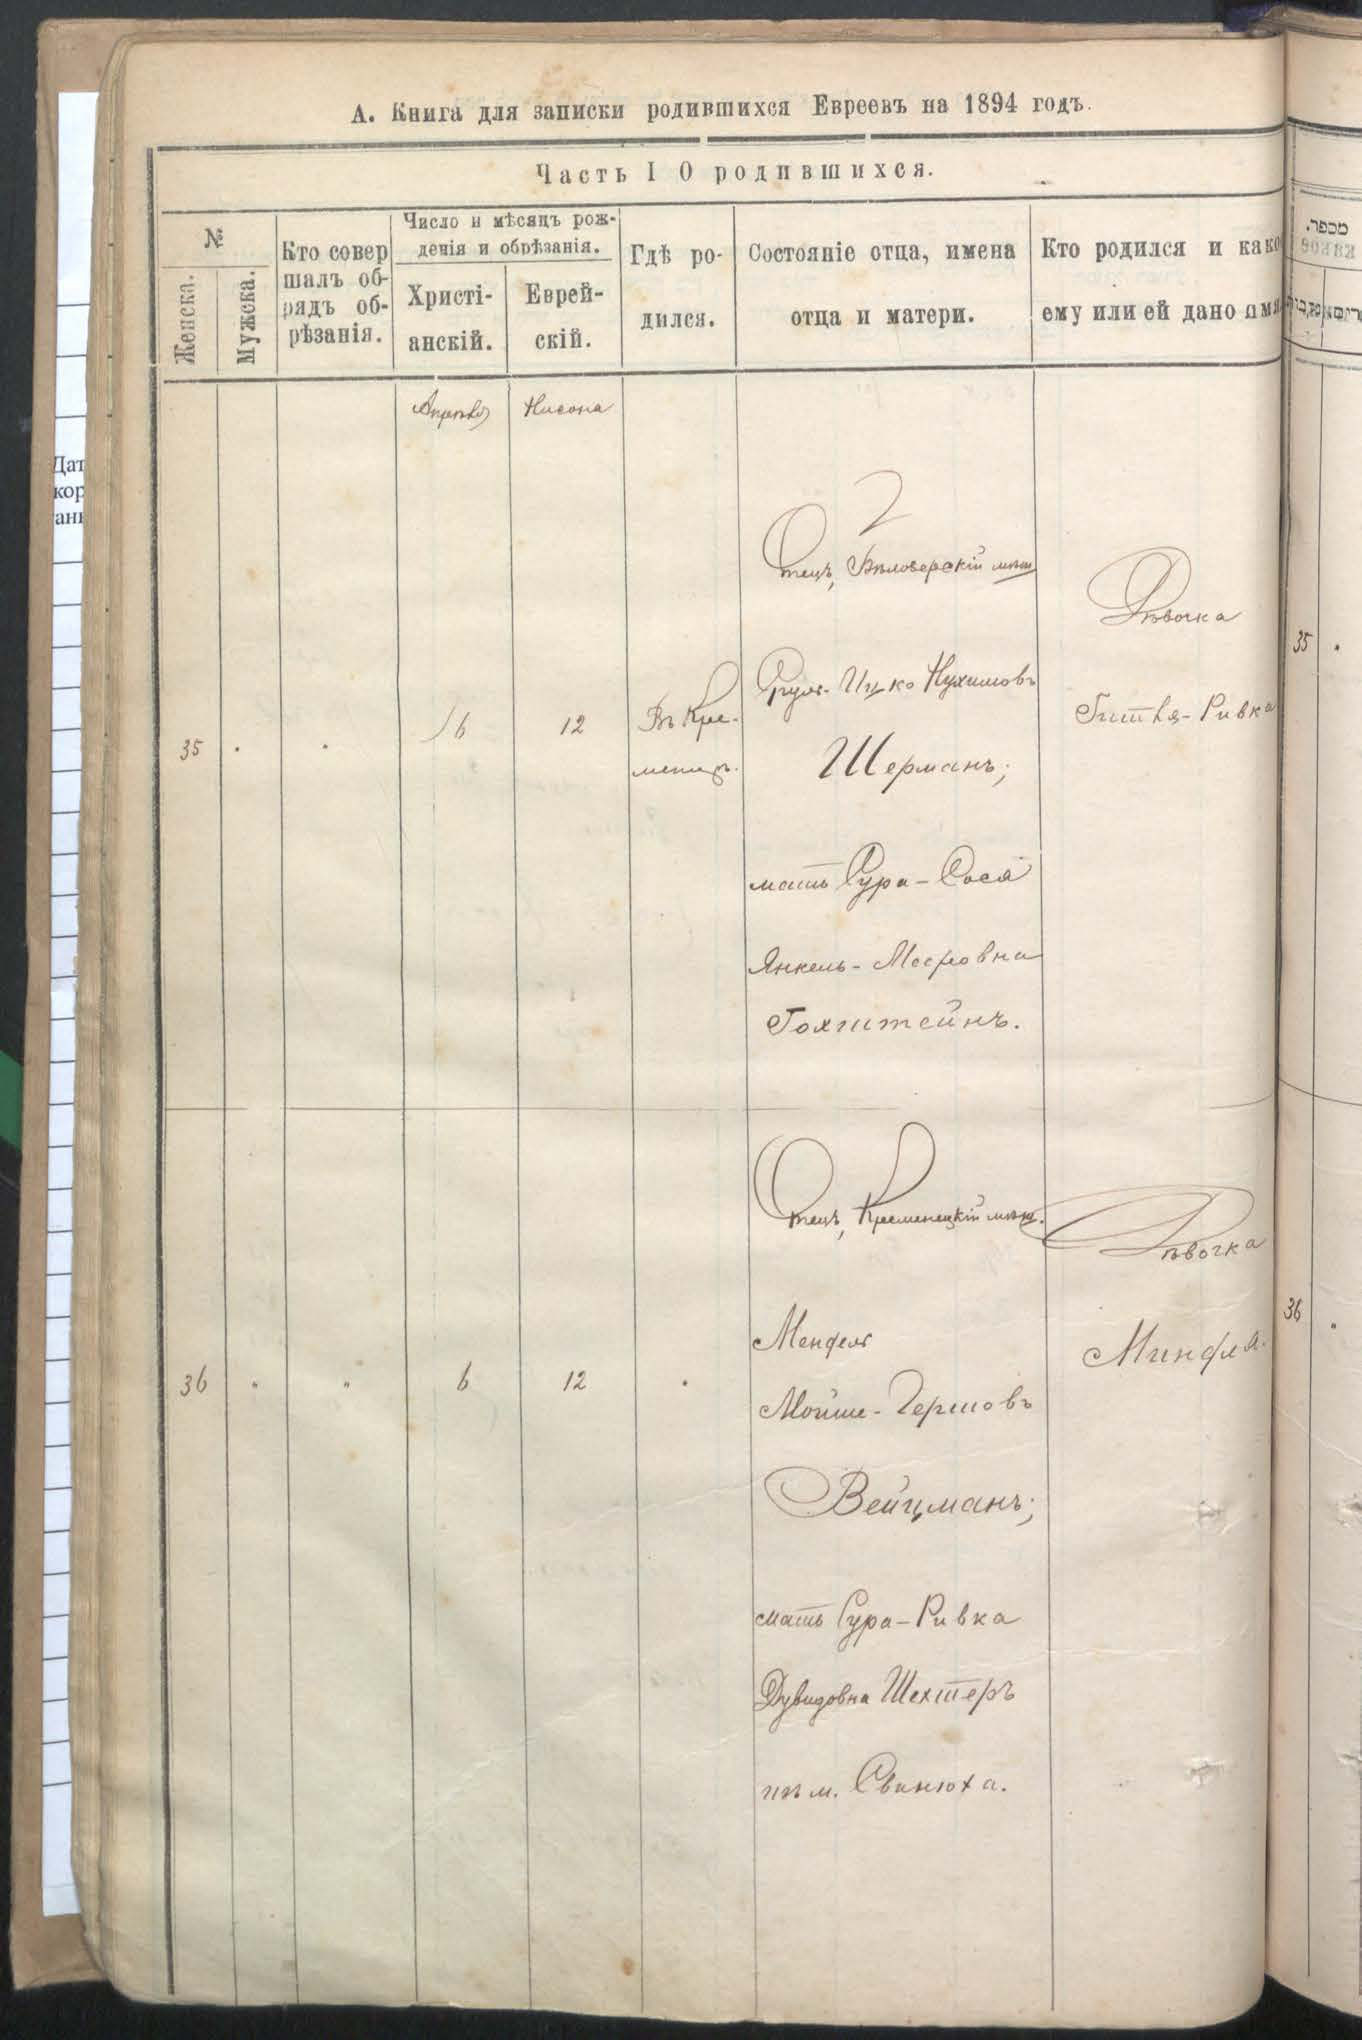 А. Книга для записки родившихся Евреевъ на 1894 годъ.
Часть I О родившихся.
№
Женска.
Мужска.
Кто совер
шалъ об-
рядъ об-
рѣзанія.
Число и мѣсяцъ рож-
денія и обрѣзанія.
Христі-
анскій.
Еврей-
скій.
Гдѣ ро-
дился.
Состояніе отца, имена
отца и матери.
Кто родился и како
ему или ей дано имя
Апрѣля
Нисона
35
6
12
Въ Кре-
менцѣ.
Отецъ, мѣщ
Сруль-Ицко Нухимовъ
Шерманъ;
мать Сура-Сося
Янкель-
Гохштейнъ.
Дѣвочка
Гитля-Ривка
36
6
12
Отецъ, Кременецкій мѣщ.
Мендель
Мойше-Гершовъ
Вейцманъ;
мать Сура-Ривка
Дувидовна Шехтеръ
изъ м. Свинюха.
Дѣвочка
Миндля.
מספר.
35
36
Дат
кор